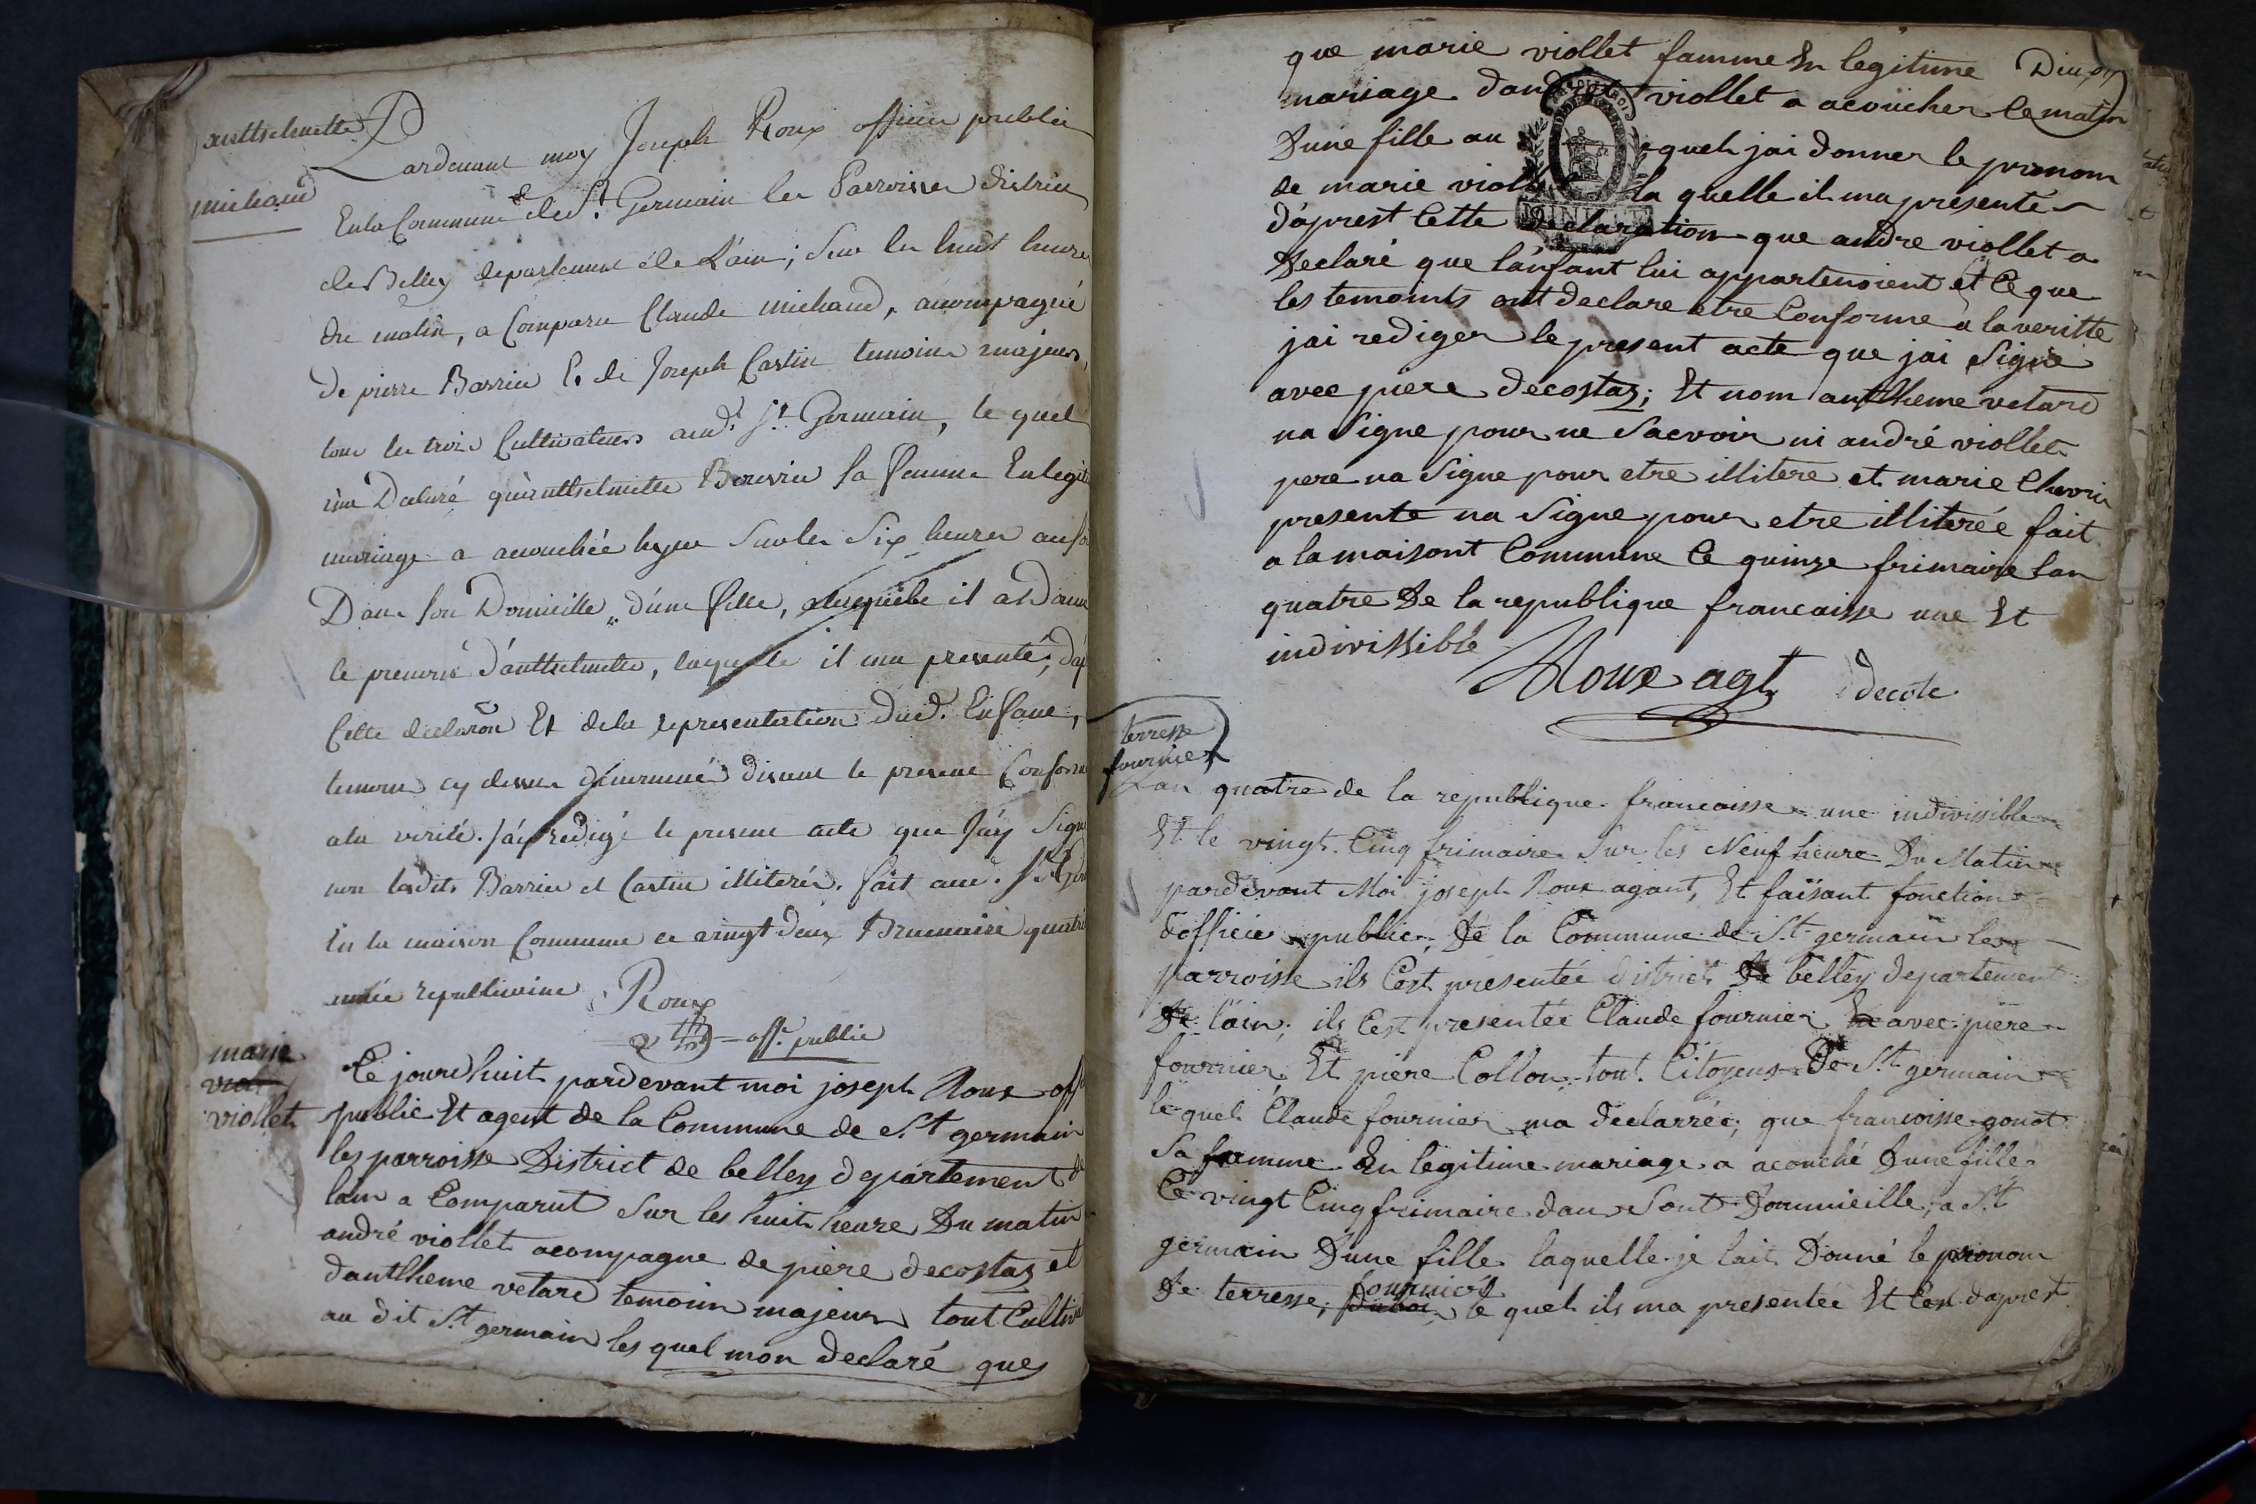 anttselmette
michaud
Pardevant moy Joseph Roux officier public
En la Commune de St. Germain les Parroisses district
de Belley departement de L'ain; Sur les huit heures
du matin, a Comparu Claude michaud, acompagné
de pierre Barrin & de Joseph Castin temoins majeurs,
tous les trois Cultivateurs aud. St. Germain, le quel
ma Declaré qu'anttselmette Bouvier sa femme En legit
mariage a acouchée hyer Sur les Six heures au so
Dans son Domicille, d'une fille, a laquelle il a Donné
le prenom d'anttselmette, laquelle il ma presenté; d'ap
Cette declaron Et de la representation dud. Enfant,
temoins cy dessus denommés disant le present Conforme
a la verité. J'ay redigé le present acte que J'ay Signé
non lesdits Barrin et Castin illiterés. fait aud. St. Ger
En la maison Commune ce vingt deux Brumaire quatri
année republicaine
Roux
off. public
marie
viol
viollet
Ce jourdhuit pardevant moi joseph Roux off
public Et agent de la Commune de St germain
les parroisse District de belley departement de
lain a Comparut Sur les huit heure Du matin
andré viollet acompagne de piere decostaz et
dantlheme vetard temoin majeur tout Cultiv
au dit St germain les quel mon declaré que
que marie viollet famme En legitime Dix
mariage dandre viollet a acoucher le matin
Dune fille au quel jai donner le pronom
de marie viol la quelle il ma presenté
daprest Cette declaration que andre viollet a
declaré que lanfant lui appartenoient et Ce que
les temoints ont declare etre Conforme a la veritte
jai rediger le present acte que jai Signé
avec piere decostaz; Et nom antlheme vetard
na Signe pour ne Sacvoir ni andré viollet
pere na Signe pour etre illitere et marie Chevri
presente na Signe pour etre illiterée fait
a la maisont Commune Ce quinze frimaire lan
quatre De la republique francaisse une Et
indivissible
Roux agt decote
terresse
fournier
Lan quatre de la republique francaisse une indivissible
Et le vingt Cinq frimaire Sur les Neuf heure Du Matin
pardevant Moi joseph Roux agant, Et faisant fonction
dofficié public, De la Commune de St germain les
parroisse ils Cest presentée district De belley departement
De lain; ils Cest presentée Claude fournier avec piere
fournier Et piere Collon tout Citoyens De St germain
le quel Claude fournier ma declarrée; que francoisse gonot
Sa famme En legitime mariage a acouché Dune fille
Ce vingt Cinq frimaire dan Sont Dommicille, a St
germain Dune fille laquelle je lait Donné le pronom
De terresse, fournier le quel ils ma presentée Et Cest daprest